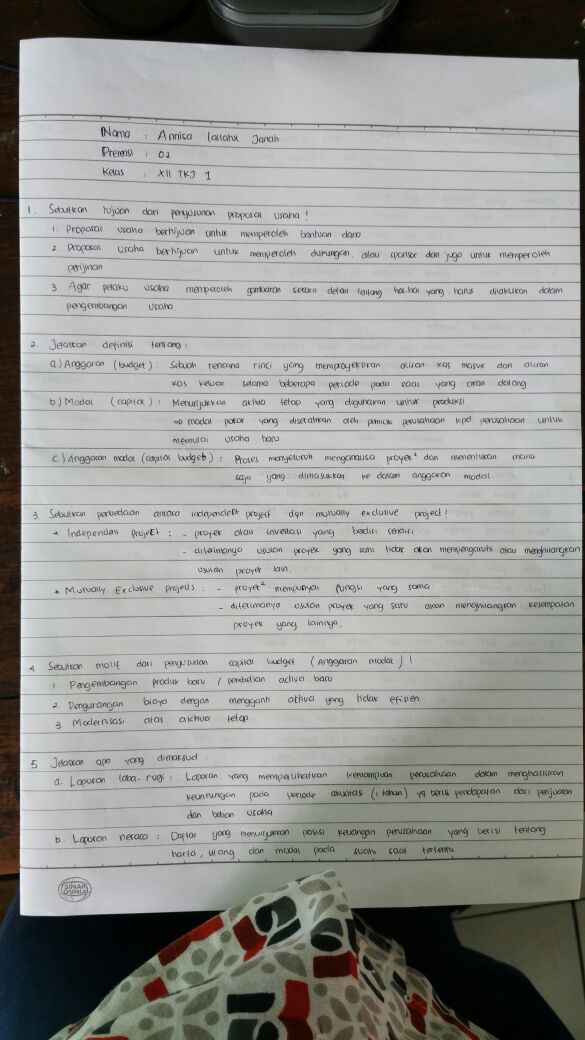 Nama : Annisa Lailatul Janah
Presensi : 02
Kelas : XII TKJ 1
1. Sebutkan tujuan dari penyusunan proposal usaha !
1. Proposal usaha bertujuan untuk memperoleh bantuan dana
2. Proposal usaha bertujuan untuk memperoleh dukungan atau sponsor dan juga untuk memperoleh
perijinan
3. Agar pelaku usaha memperoleh gambaran secara detail tentang hal-hal yang harus dilakukan dalam
pengembangan usaha.
2. Jelaskan definisi tentang :
a) Anggaran (budget) : Sebuah rencana rinci yang memproyeksikan aliran kas masuk dan aliran
kas keluar selama beberapa periode pada saat yang akan datang
b) Modal (capital) : Menunjukkan aktiva tetap yang digunakan untuk produksi
⇒ modal pokok yang diserahkan oleh pemilik perusahaan kpd perusahaan untuk
memulai usaha baru.
c) Anggaran modal (capital budget) : Proses menyeluruh menganalisa proyek² dan menentukan mana
saja yang dimasukkan ke dalam anggaran modal.
3. Sebutkan perbedaan antara independent project dgn mutually exclusive project!
* Independent project : - proyek atau investasi yang berdiri sendiri
- diterimanya usulan proyek yang satu tidak akan mempengaruhi atau menghilangkan
usulan proyek lain.
* Mutually Exclusive Projects : - proyek² mempunyai fungsi yang sama
- diterimanya usulan proyek yang satu akan menghilangkan kesempatan
proyek yang lainnya.
4 Sebutkan motif dari penyusunan capital budget (Anggaran modal) !
1. Pengembangan produk baru / pembelian activa baru
2. Pengurangan biaya dengan mengganti aktiva yang tidak efisien
3. Modernisasi atas aktiva tetap
5 Jelaskan apa yang dimaksud :
a. Laporan laba-rugi : Laporan yang memperlihatkan kemampuan perusahaan dalam menghasilkan
keuntungan pada periode akuntasi (1 tahun) yg berisi pendapatan dari penjualan
dan beban usaha
b. Laporan neraca : Daftar yang menunjukkan posisi keuangan perusahaan yang berisi tentang
harta, utang dan modal pada suatu saat tertentu
SINAR
DUNIA